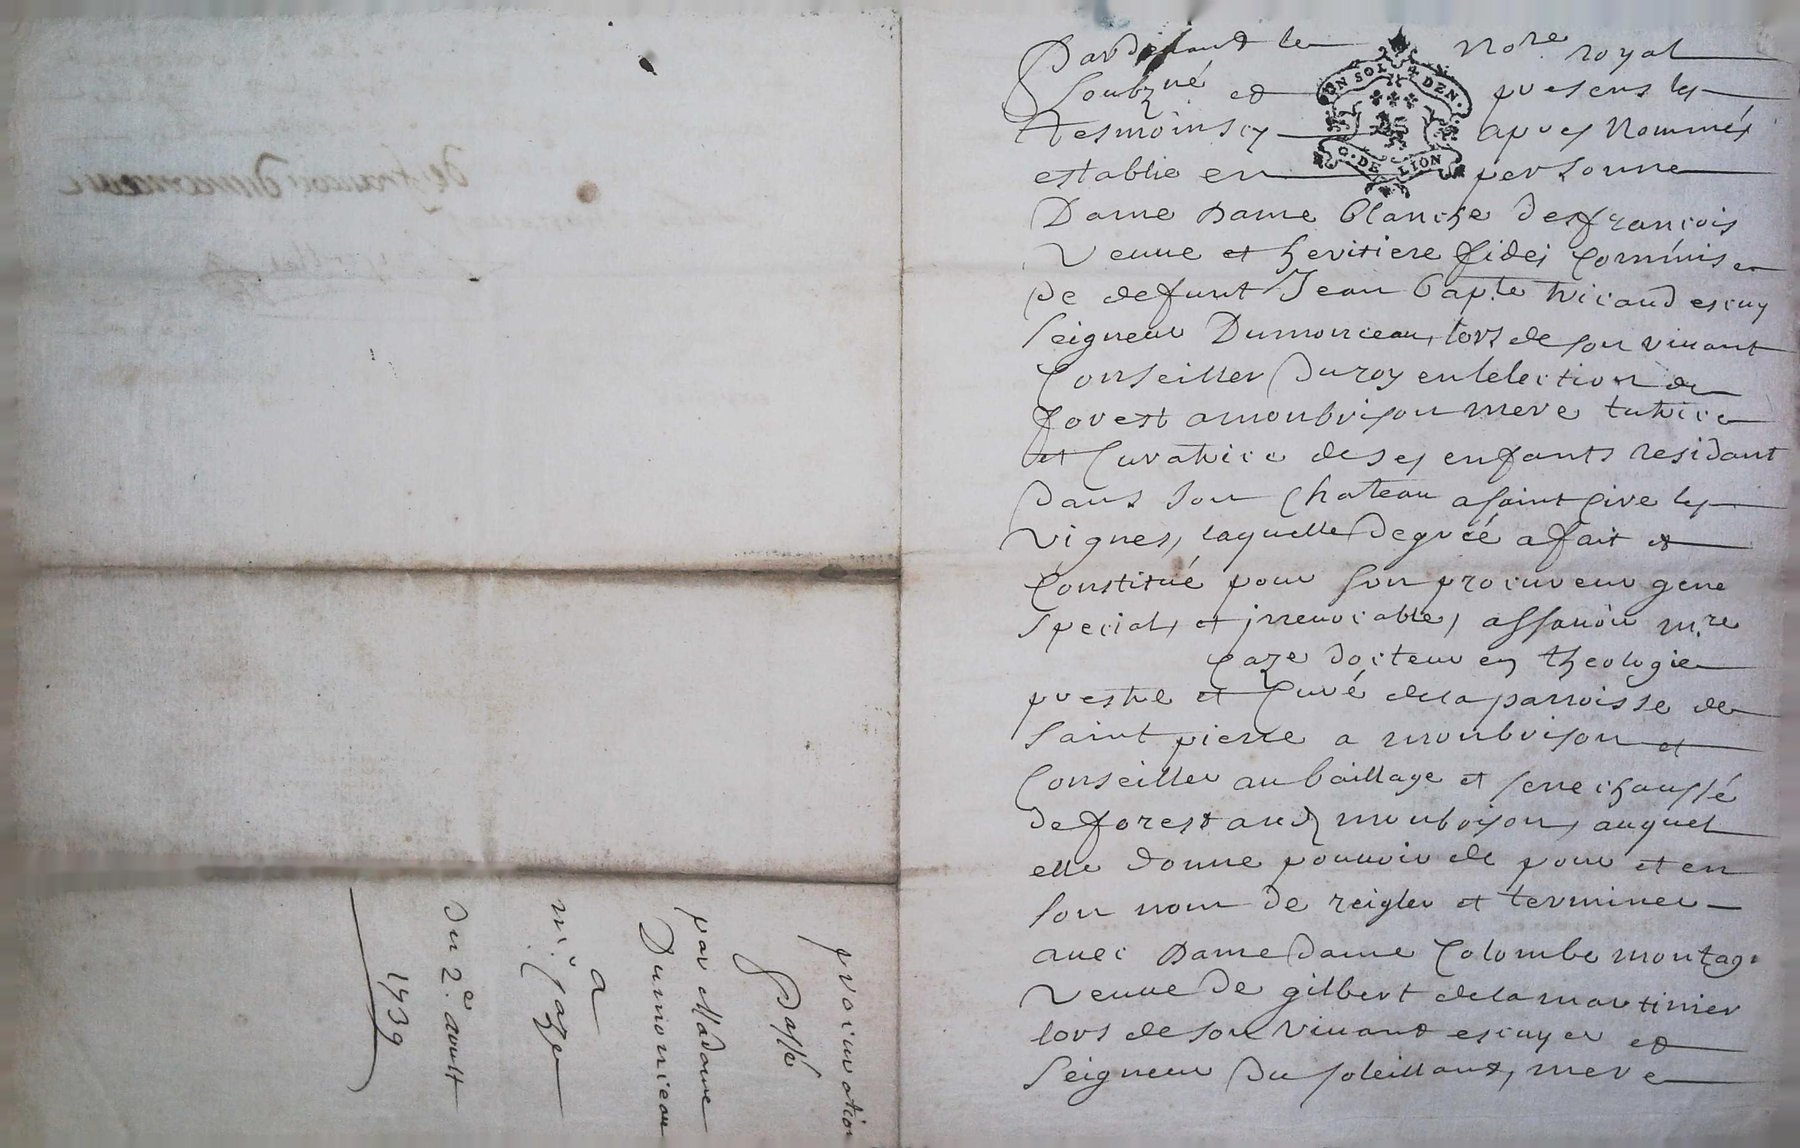 Pardevant le No.re royal
Soubz.né et presens les
tesmoins cy apres Nommés
establie en personne
Dame Dame blanche desfrancois
veuve et heritiere fidei Commis en
de defunt Jean bap.te tricaud escuy
Seigneur Dumonceau, lors de son vivant
Conseiller du roy en lelection de
forest a monbrison mere tutrice
et Curatrice de ses enfants residant
dans son chateau a saint Cire les
vignes, laquelle degréé a fait et
Constitué pour son procureur gene
special, et jrrevocable, assavoir m.re
Caze docteur en theologie
prestre et Curé de la parroisse de
Saint pierre a monbrison et
Conseiller au baillage et senechaussé
de forest aud monbrison, auquel
elle donne pouvoir de pour et en
son nom de reigler et terminer
avec Dame Dame Colombe montag
veuve de gilbert de la martinier
lors de son vivant escuyer et
Seigneur du soleillant, mere
UN SOL 4 DEN.
G. DE LION
procuration
Passé
par Madame
Dumonceau
a
m.r Caze
du 2.e aoust
1739
desfrancois dumonceau